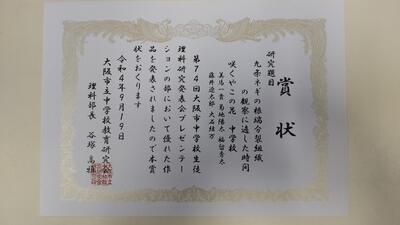 賞状
研究題目
九条ネギの根端分裂組織
の観察に適した時間
咲くやこの花 中学校
第74回大阪市中学校生徒
理科研究発表会プレゼンテー
ションの部において優れた作
品を発表されましたので本賞
状をおくります
令和4年9月19日
大阪市立中学校教育研究会
理科部長